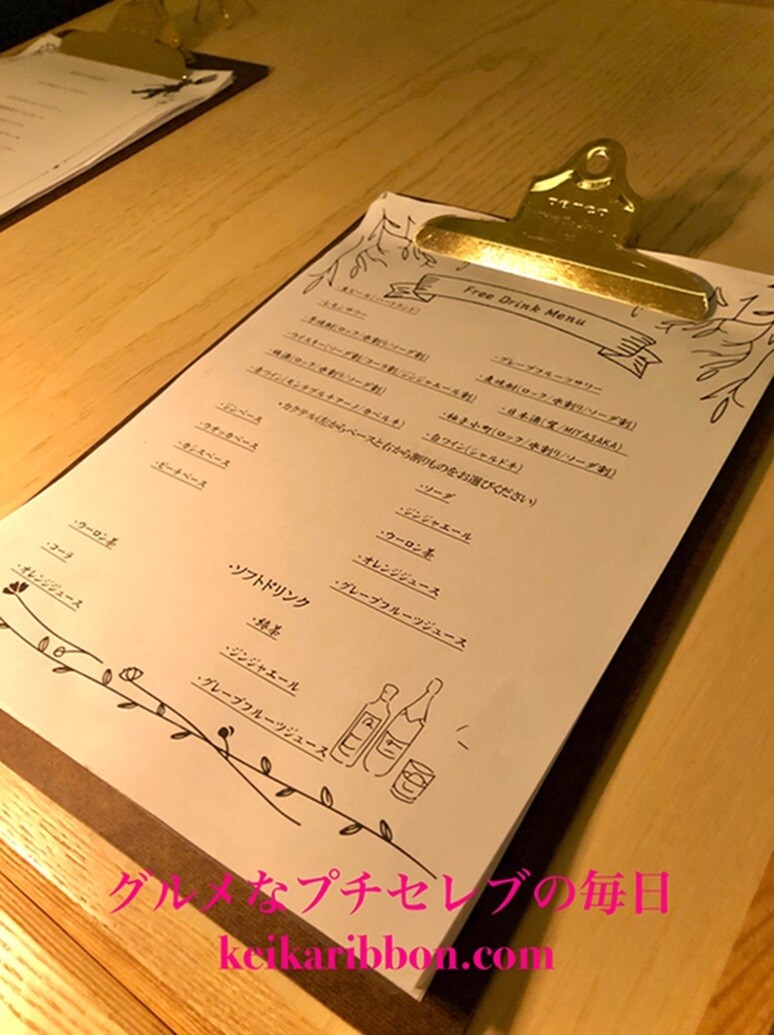 Free Drink Menu
・生ビール(ハートランド)
・レモンサワー
・グレープフルーツサワー
・芋焼酎(ロック/水割り/ソーダ割)
・麦焼酎(ロック/水割り/ソーダ割)
・ウイスキー(ソーダ割/コーラ割/ジンジャエール割)
・日本酒(實/MIYASAKA)
・梅酒(ロック/水割り/ソーダ割)
・柚子小町(ロック/水割り/ソーダ割)
・赤ワイン(モンテプルチアーノ/カベルネ)
・白ワイン(シャルドネ)
・カクテル(左からベースと右から割りものをお選びください)
・ジンベース
・ソーダ
・ウオッカベース
・ジンジャエール
・カシスベース
・ウーロン茶
・ピーチベース
・オレンジジュース
・グレープフルーツジュース
・ソフトドリンク
・ウーロン茶
・緑茶
・コーラ
・ジンジャエール
・オレンジジュース
・グレープフルーツジュース
グルメなプチセレブの毎日
keikaribbon.com